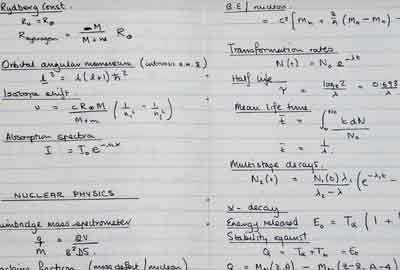 Rydberg Const.
R₀ = R∞
R_Hydrogen = M / (M + m) R∞
Orbital angular momentum
l² = l(l+1)ħ²
Isotope shift.
υ = cR∞M / (M+m) (1/n₁² − 1/n₂²)
Absorption spectra
I = I₀e^
NUCLEAR PHYSICS
mass spectrometer
q/m = 2V / B²DS
fraction (mass defect / nucleon)
B.E / nucleon
= c² [Mₙ +
Transformation rates
N(t) = N₀ e^-λt
Half life
τ = logₑ2 / λ = 0.693 / λ
Mean life time
t̄ = ∫ t dN / N₀
t̄ = 1/λ
Multistage decays.
N₂(t) = N₁(0) λ₁ / (λ₂ − λ₁) (e^-λ₁t −
α - decay
Energy released E₀ = Tα (1 +
Stability against
Q = Tα + Tb = E₀